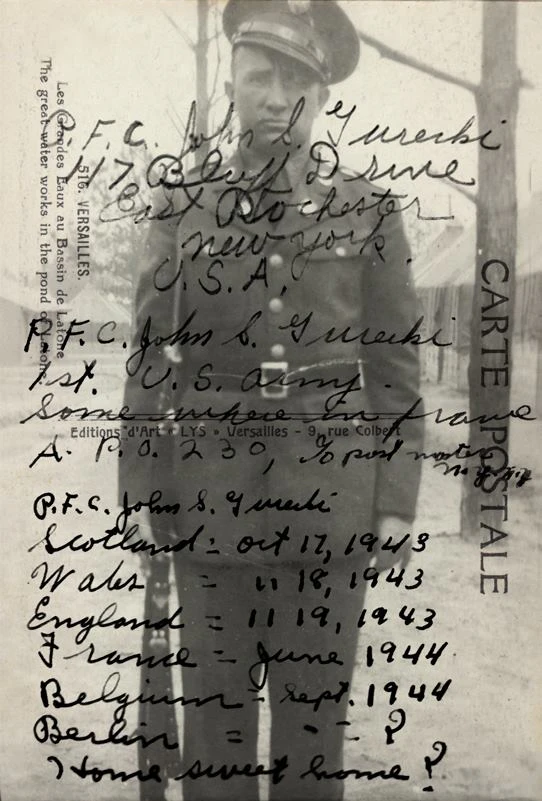 P.F.C. John S. Gurecki
117 Bluff Drive
East Rochester
new york.
U.S.A.
P.F.C. John S. Gurecki
1st. U.S. army.
Some where in france
A. P.O. 230, % post master
N.Y. N.Y.
P.F.C. John S. Gurecki
Scotland = oct 17, 1943
Wales = 11 18, 1943
England = 11 19, 1943
France = June 1944
Belgium = Sept. 1944
Berlin = - - ?
Home sweet home?
516. VERSAILLES.
Les Grandes Eaux au Bassin de Latone
The great water works in the pond of Latone
Editions d'Art « LYS » Versailles - 9, rue Colbert
CARTE POSTALE